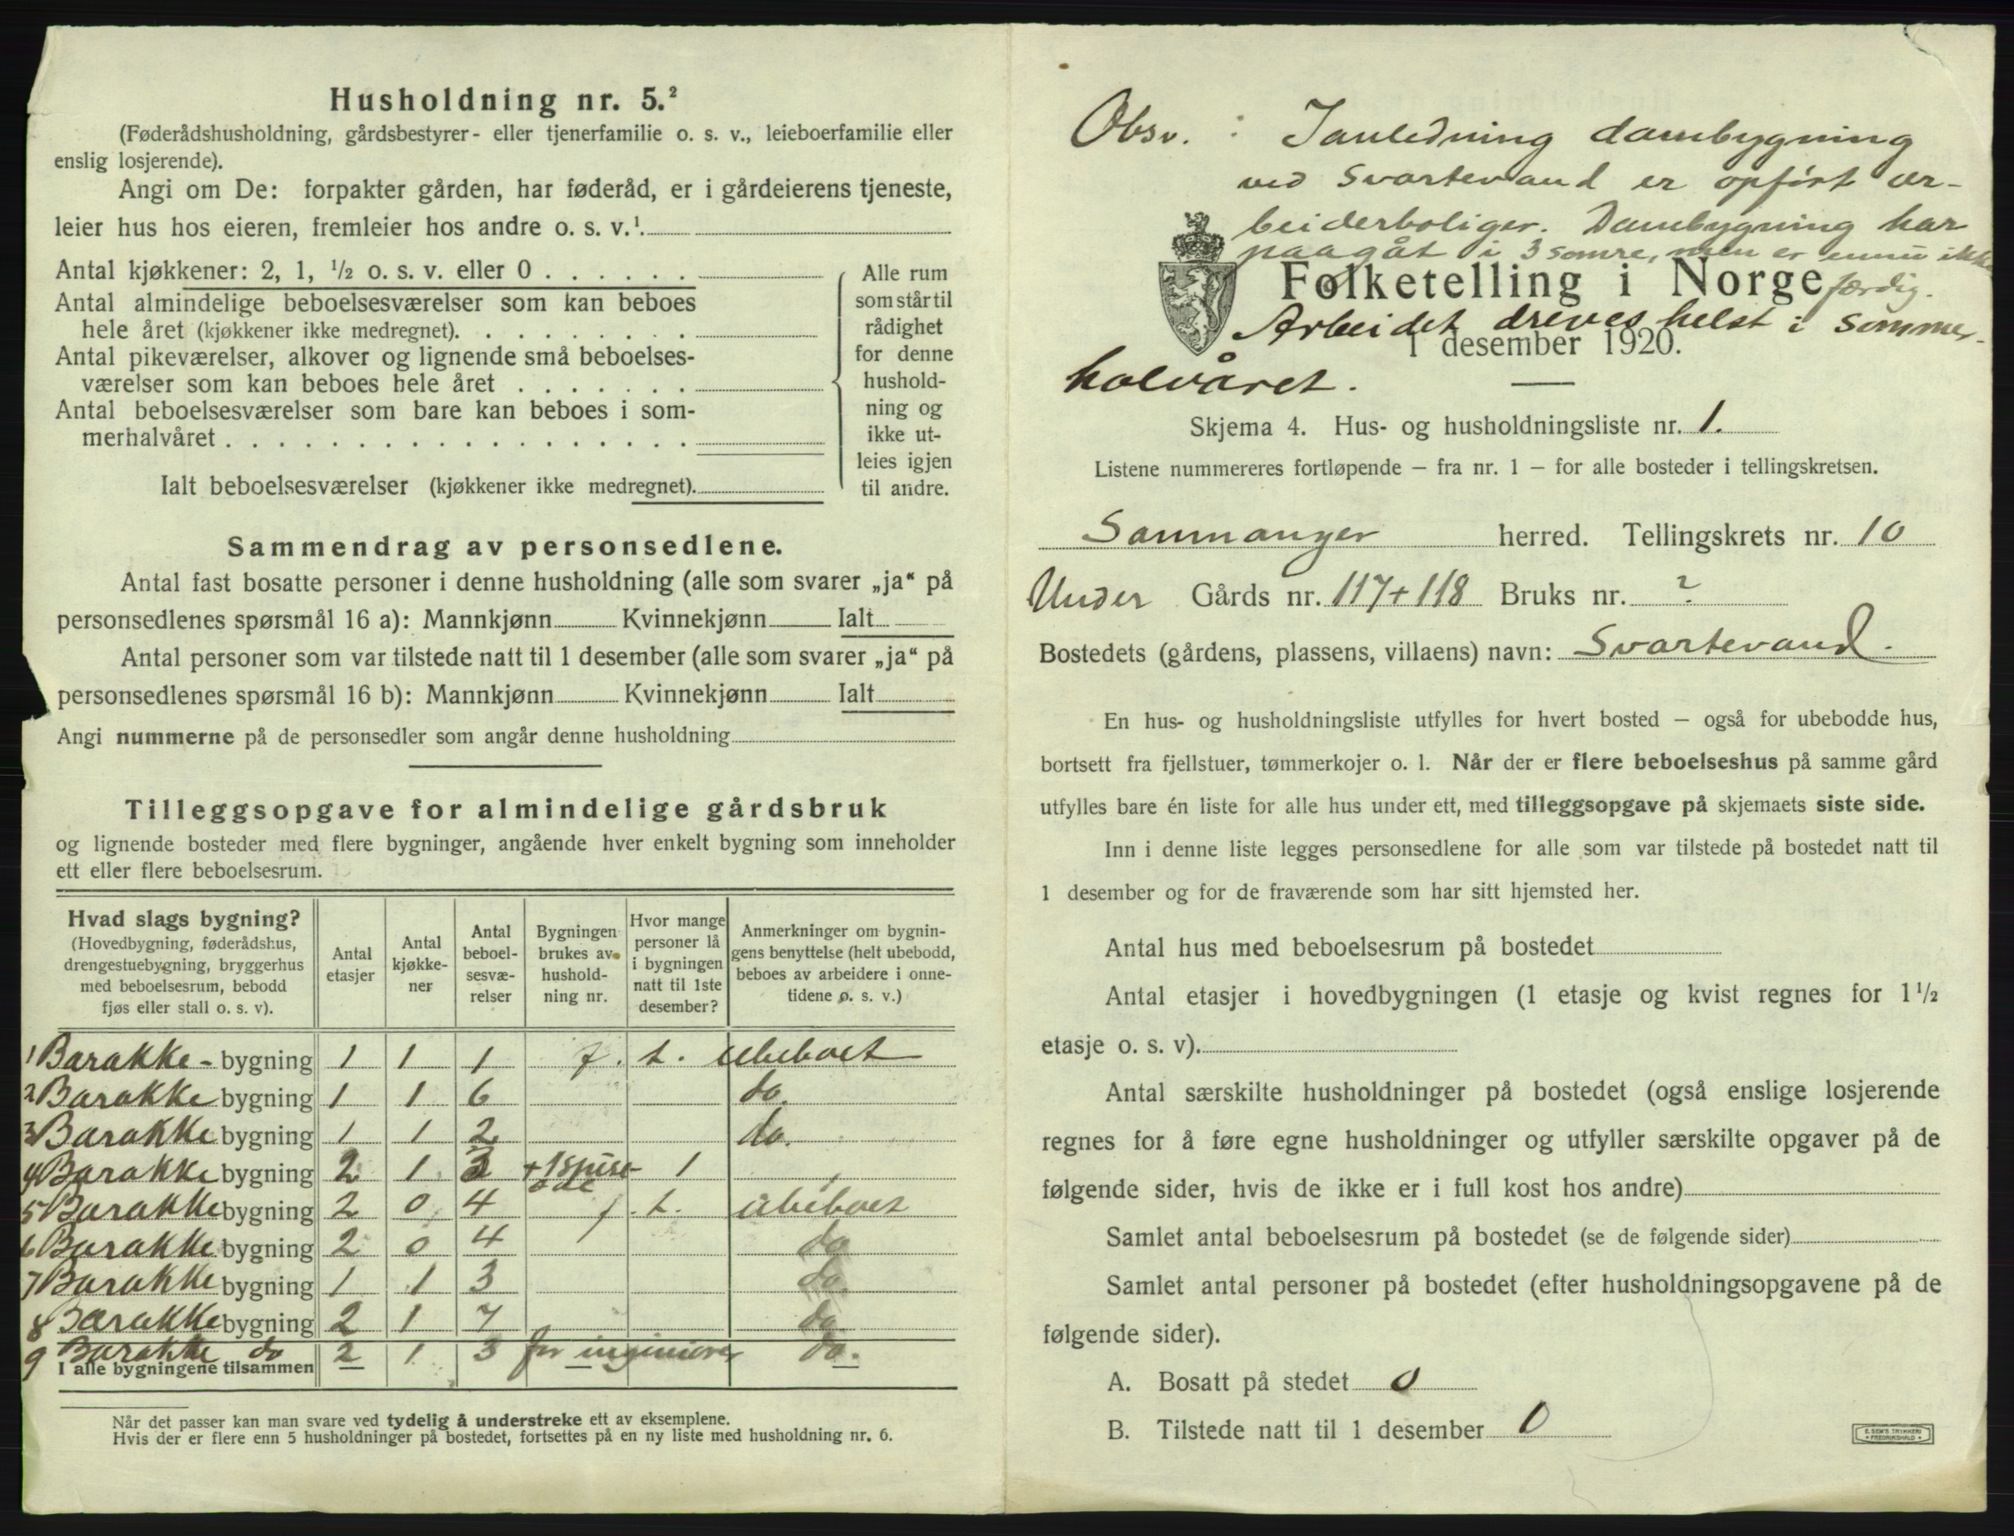 Husholdning nr. 5.²
(Føderådshusholdning, gårdsbestyrer- eller tjenerfamilie o. s. v., leieboerfamilie eller
enslig losjerende).
Angi om De: forpakter gården, har føderåd, er i gårdeierens tjeneste,
leier hus hos eieren, fremleier hos andre o. s. v.¹.
Antal kjøkkener: 2, 1, ½ o. s. v. eller 0
Antal almindelige beboelsesværelser som kan beboes
hele året (kjøkkener ikke medregnet).
Antal pikeværelser, alkover og lignende små beboelses-
værelser som kan beboes hele året
Antal beboelsesværelser som bare kan beboes i som-
merhalvåret
Ialt beboelsesværelser (kjøkkener ikke medregnet).
Alle rum
som står til
rådighet
for denne
hushold-
ning og
ikke ut-
leies igjen
til andre.
Sammendrag av personsedlene.
Antal fast bosatte personer i denne husholdning (alle som svarer „ja“ på
personsedlenes spørsmål 16 a): Mannkjønn Kvinnekjønn Ialt
Antal personer som var tilstede natt til 1 desember (alle som svarer „ja“ på
personsedlenes spørsmål 16 b): Mannkjønn Kvinnekjønn Ialt
Angi nummerne på de personsedler som angår denne husholdning
Tilleggsopgave for almindelige gårdsbruk
og lignende bosteder med flere bygninger, angående hver enkelt bygning som inneholder
ett eller flere beboelsesrum.
Hvad slags bygning?
(Hovedbygning, føderådshus,
drengestuebygning, bryggerhus
med beboelsesrum, bebodd
fjøs eller stall o. s. v).
Antal
etasjer
Antal
kjøkke-
ner
Antal
beboel-
sesvæ-
relser
Bygningen
brukes av
hushold-
ning nr.
Hvor mange
personer lå
i bygningen
natt til 1ste
desember?
Anmerkninger om bygnin-
gens benyttelse (helt ubebodd,
beboes av arbeidere i onne-
tidene o. s. v.)
1 Barakke - bygning 1 1 1 f. t. ubeboet
2 Barakke bygning 1 1 6 do.
3 Barakke bygning 1 1 2 do.
4 Barakke bygning 2 1 3 + 1 spise- 1
5 Barakke bygning 2 0 4 f. t. ubeboet
6 Barakke bygning 2 0 4 do
7 Barakke bygning 1 1 3 do.
8 Barakke bygning 2 1 7 do
9 Barakke do 2 1 3 for ingeniører do.
I alle bygningene tilsammen
Når det passer kan man svare ved tydelig å understreke ett av eksemplene.
Hvis der er flere enn 5 husholdninger på bostedet, fortsettes på en ny liste med husholdning nr. 6.
Obsv. : Ianledning dambygning
ved Svartevand er opført ar-
beiderboliger. Dambygning har
paagåt i 3 somre, men er ennu ikke
færdig.
Folketelling i Norge
Arbeidet dreves helst i sommer-
1 desember 1920.
halvåret.
Skjema 4. Hus- og husholdningsliste nr. 1.
Listene nummereres fortløpende – fra nr. 1 – for alle bosteder i tellingskretsen.
Sammanger herred. Tellingskrets nr. 10
Under Gårds nr. 117+118 Bruks nr. ?
Bostedets (gårdens, plassens, villaens) navn: Svartevand.
En hus- og husholdningsliste utfylles for hvert bosted – også for ubebodde hus,
bortsett fra fjellstuer, tømmerkojer o. l. Når der er flere beboelseshus på samme gård
utfylles bare én liste for alle hus under ett, med tilleggsopgave på skjemaets siste side.
Inn i denne liste legges personsedlene for alle som var tilstede på bostedet natt til
1 desember og for de fraværende som har sitt hjemsted her.
Antal hus med beboelsesrum på bostedet
Antal etasjer i hovedbygningen (1 etasje og kvist regnes for 1 ½
etasje o. s. v).
Antal særskilte husholdninger på bostedet (også enslige losjerende
regnes for å føre egne husholdninger og utfyller særskilte opgaver på de
følgende sider, hvis de ikke er i full kost hos andre)
Samlet antal beboelsesrum på bostedet (se de følgende sider)
Samlet antal personer på bostedet (efter husholdningsopgavene på de
følgende sider).
A. Bosatt på stedet 0
B. Tilstede natt til 1 desember 0
E. SEM'S TRYKKERI
FREDRIKSHALD